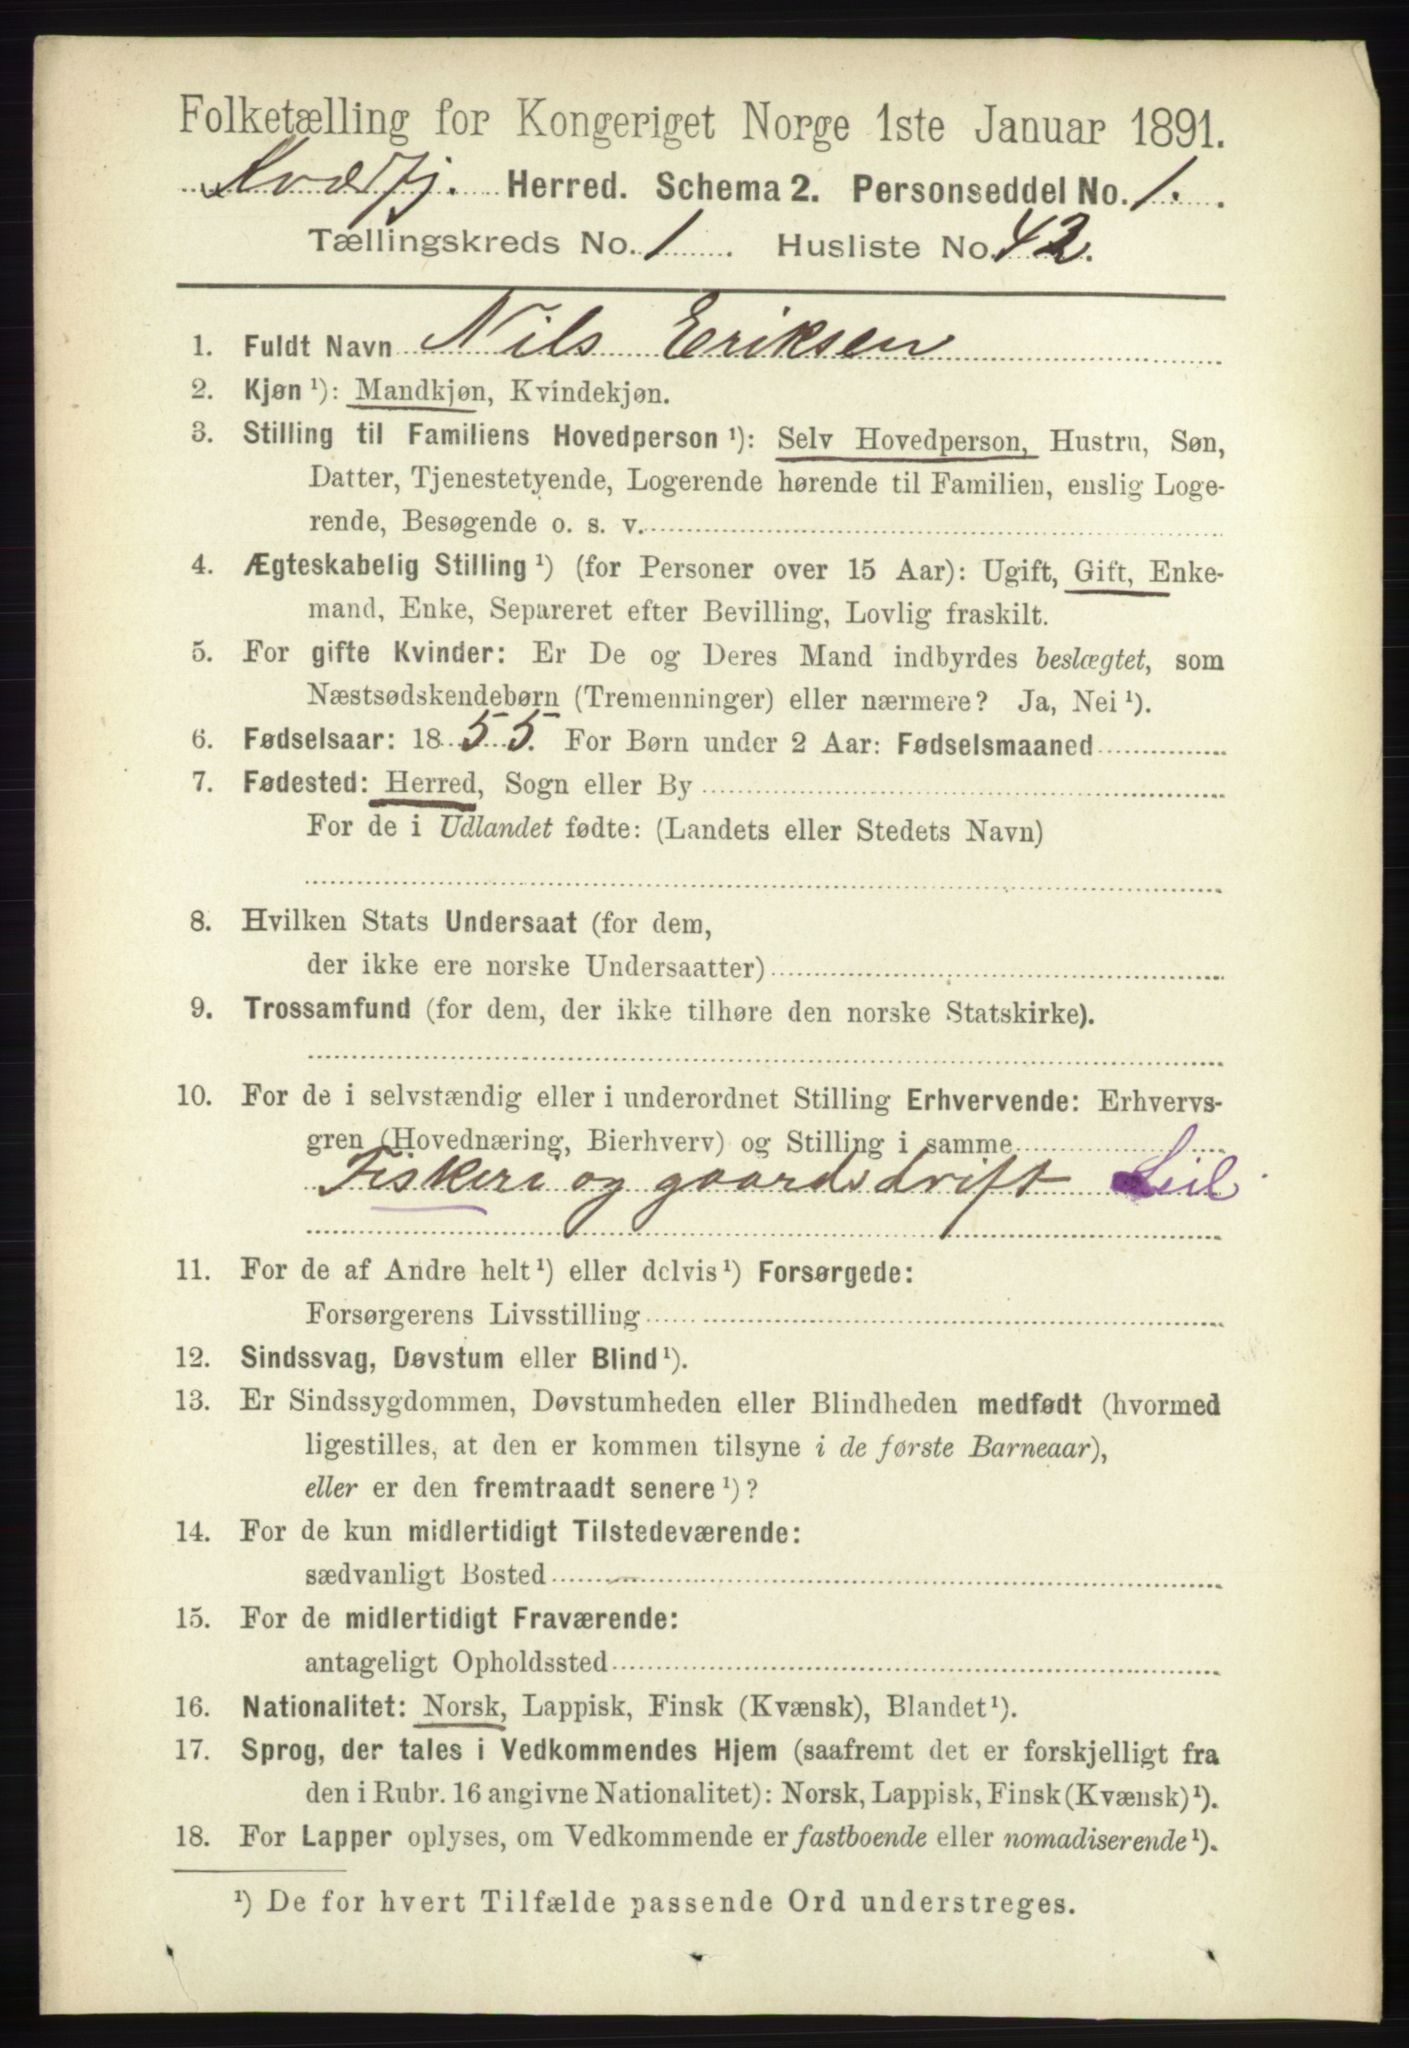 Folketælling for Kongeriget Norge 1ste Januar 1891.
Kvæfj. Herred. Schema 2. Personseddel No. 1.
Tællingskreds No. 1. Husliste No. 42.
1. Fuldt Navn Nils Eriksen
2. Kjøn ¹): Mandkjøn, Kvindekjøn.
3. Stilling til Familiens Hovedperson ¹): Selv Hovedperson, Hustru, Søn,
Datter, Tjenestetyende, Logerende hørende til Familien, enslig Loge-
rende, Besøgende o. s. v.
4. Ægteskabelig Stilling ¹) (for Personer over 15 Aar): Ugift, Gift, Enke-
mand, Enke, Separeret efter Bevilling, Lovlig fraskilt.
5. For gifte Kvinder: Er De og Deres Mand indbyrdes beslægtet, som
Næstsødskendebørn (Tremenninger) eller nærmere? Ja, Nei ¹).
6. Fødselsaar: 1855. For Børn under 2 Aar: Fødselsmaaned
7. Fødested: Herred, Sogn eller By
For de i Udlandet fødte: (Landets eller Stedets Navn)
8. Hvilken Stats Undersaat (for dem,
der ikke ere norske Undersaatter)
9. Trossamfund (for dem, der ikke tilhøre den norske Statskirke).
10. For de i selvstændig eller i underordnet Stilling Erhvervende: Erhvervs-
gren (Hovednæring, Bierhverv) og Stilling i samme
Fiskeri og gaardsdrift Leil
11. For de af Andre helt ¹) eller delvis ¹) Forsørgede:
Forsørgerens Livsstilling
12. Sindssvag, Døvstum eller Blind ¹).
13. Er Sindssygdommen, Døvstumheden eller Blindheden medfødt (hvormed
ligestilles, at den er kommen tilsyne i de første Barneaar),
eller er den fremtraadt senere ¹)?
14. For de kun midlertidigt Tilstedeværende:
sædvanligt Bosted
15. For de midlertidigt Fraværende:
antageligt Opholdssted
16. Nationalitet: Norsk, Lappisk, Finsk (Kvænsk), Blandet ¹).
17. Sprog, der tales i Vedkommendes Hjem (saafremt det er forskjelligt fra
den i Rubr. 16 angivne Nationalitet): Norsk, Lappisk, Finsk (Kvænsk) ¹).
18. For Lapper oplyses, om Vedkommende er fastboende eller nomadiserende ¹).
¹) De for hvert Tilfælde passende Ord understreges.